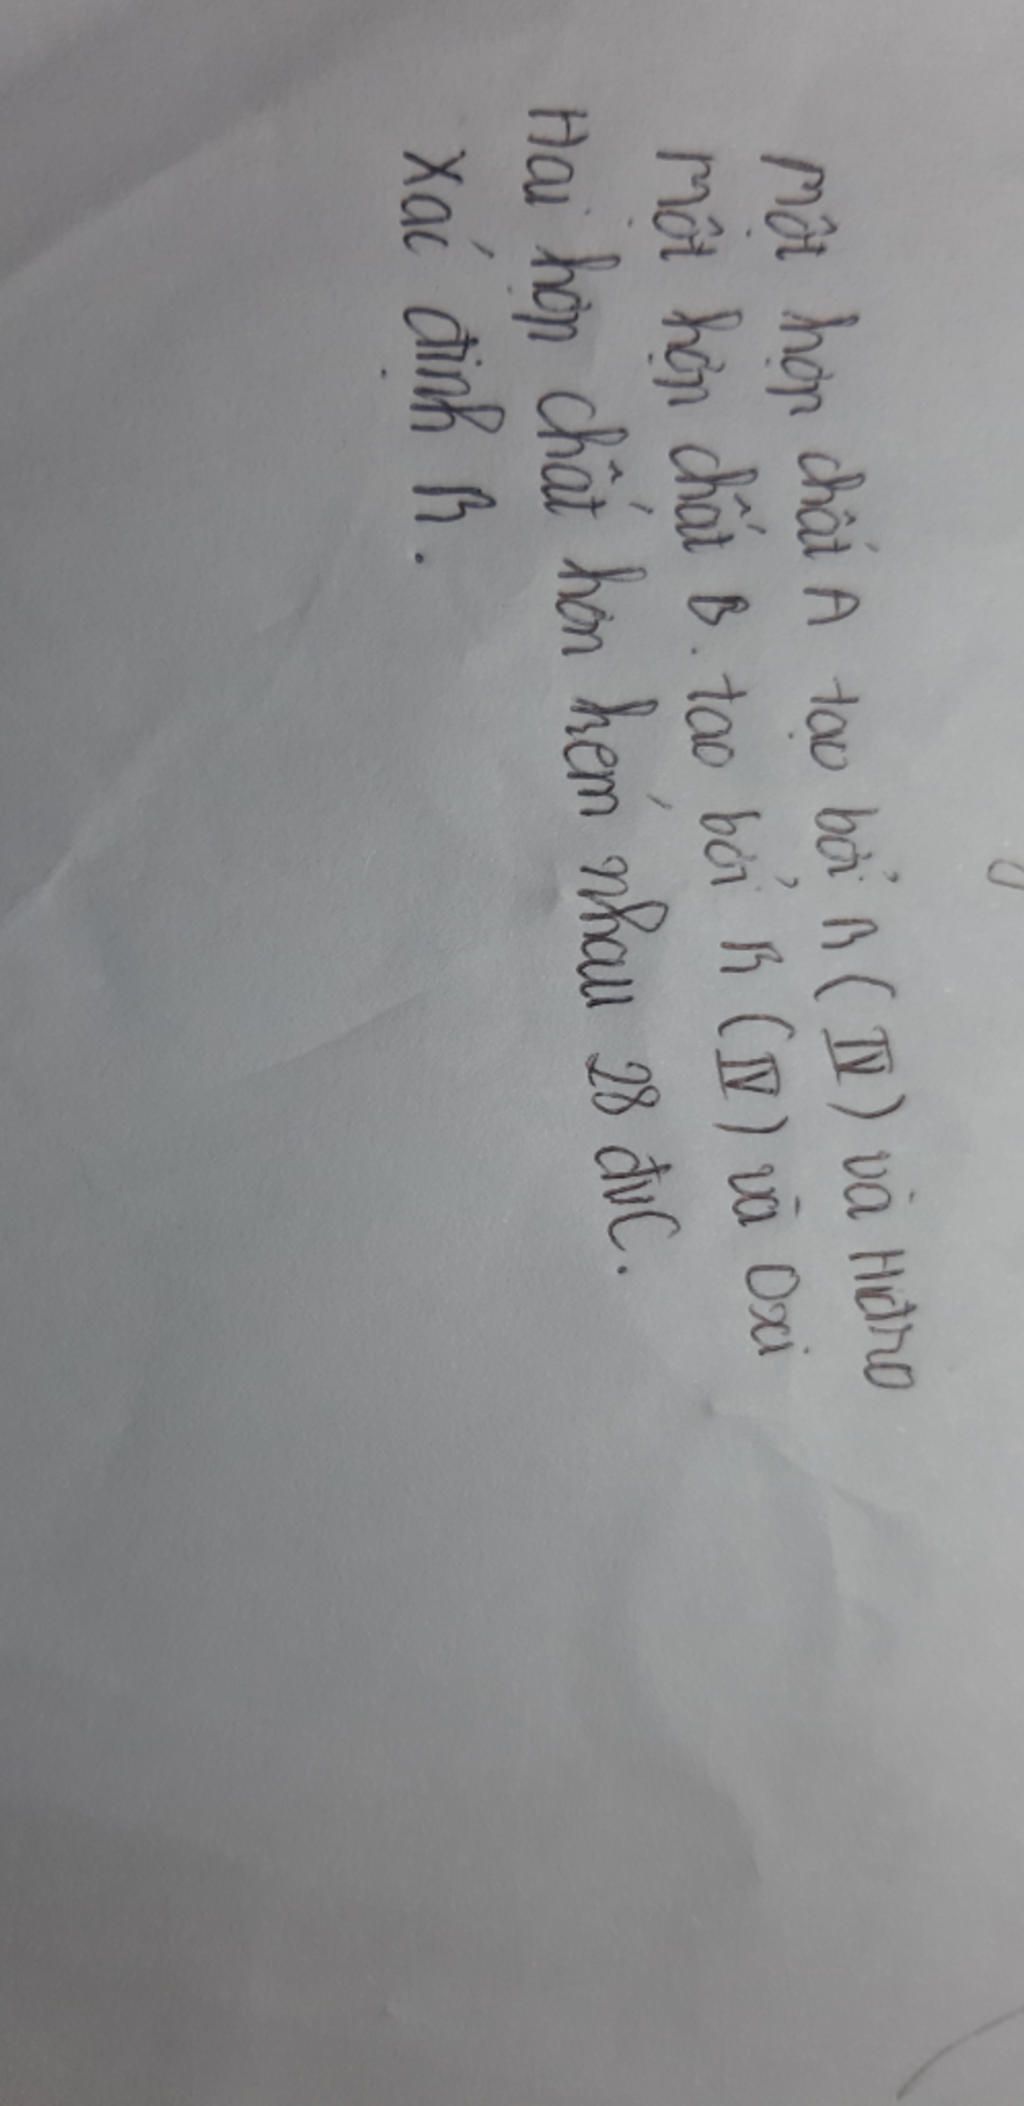 Một hợp chất A tạo bởi R (IV) và Hiđro
Một hợp chất B. tạo bởi R (IV) và Oxi
Hai hợp chất hơn kém nhau 28 đvC.
Xác định R.